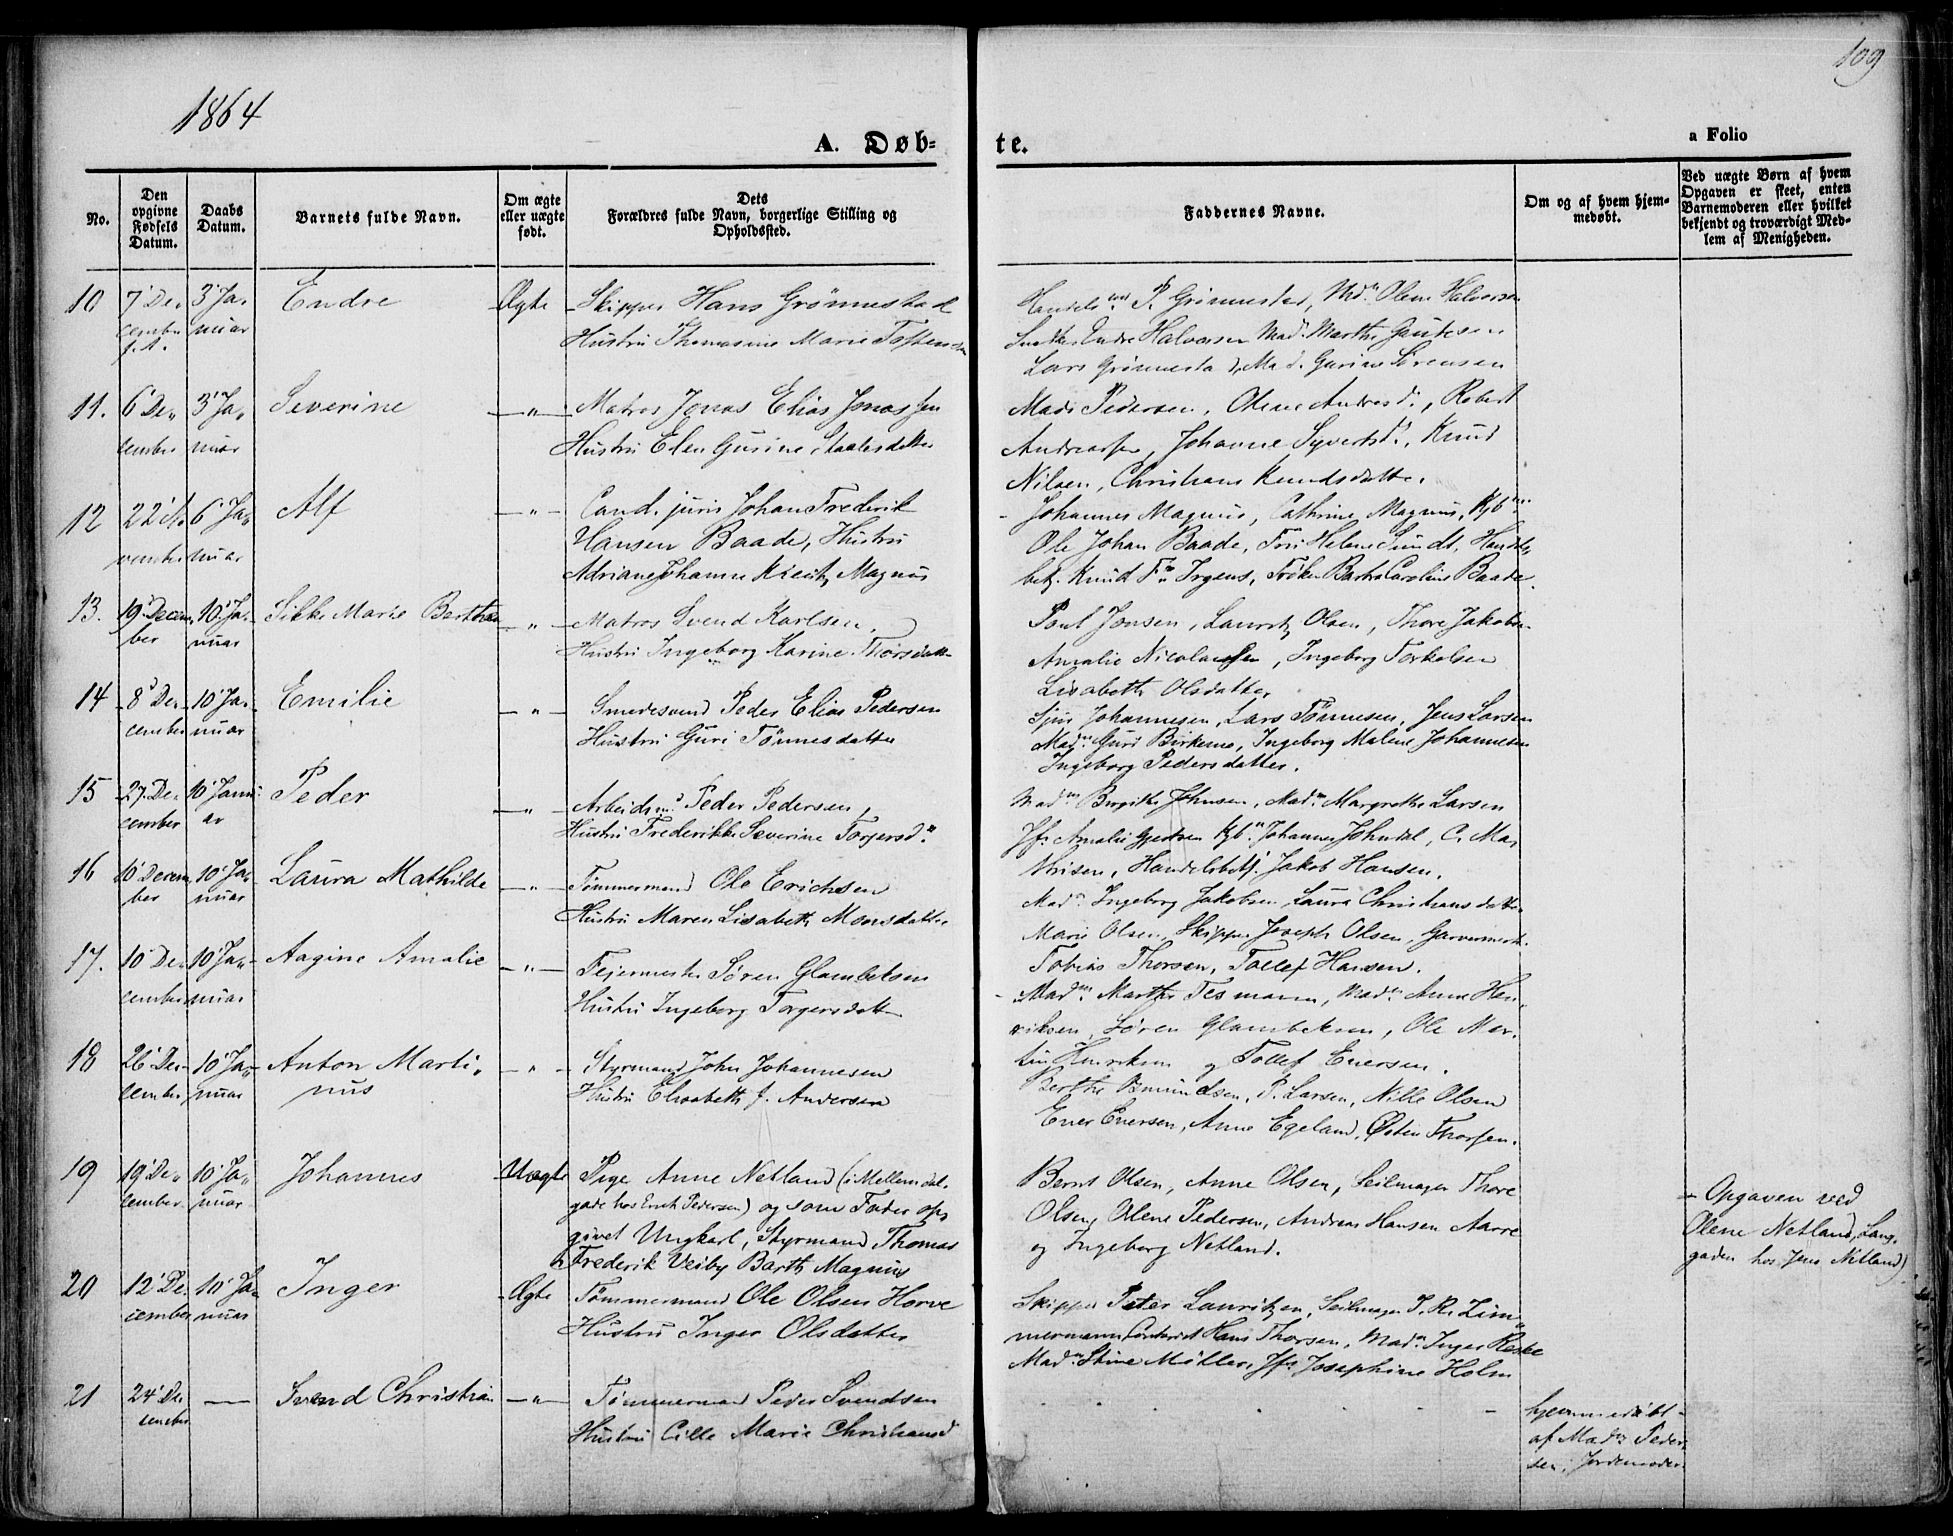 109
1864
A. Døb-
te.
a Folio
No.
Den opgivne Fødsels Datum.
Daabs Datum.
Barnets fulde Navn.
Om ægte eller uægte født.
Dets Forældres fulde Navn, borgerlige Stilling og Opholdssted.
Faddernes Navne.
Om og af hvem hjem-
medøbt.
Ved uægte Børn af hvem
Opgaven er skeet, enten
Barnemoderen eller hvilket
bekjendt og troværdigt Med-
lem af Menigheden.
10 7' De- 3' Ja- Endre Ægte Skipper Hans Grønnestad
cember nuar Hustru Thomasine Marie
P. Grönnestad, Md. Olene Halvorsen
Endre Halvorsen Mad. Marthe Gautesen
Lars Grönnestad, Mad. Gurine Sörensen
11. 6' De- 3' Ja- Severine —"— Matros Jonas Elias Jonassen
cember nuar Hustru Elen Gurine Staalesdatter
Mads Pedersen, Olene Andresd., Robert
Andreassen, Johanne Syvertsd., Knud
Nilsen, Christiane Knudsdatter.
12 22' No- 6' Ja- Alf —"— Cand. juris Johan Frederik
vember nuar Hansen Baade, Hustru
Adriane Johanne Magnus
Johannes Magnus, Cathrine Magnus, Kjbm.
Ole Johan Baade, Fru Helene Sundt, Handels-
betj. Knud Fr. Irgens, Frøken Caroline Baade.
13. 19' Decem- 10' Ja- Sikke Marie Berthea —"— Matros Svend Karlsen,
ber nuar Hustru Ingeborg Karine Thorsdatter
Poul Jonsen, Lauritz Olsen, Thore Jakobsen
Amalie Nicolaisen, Ingeborg Torkelsen
Lisabeth Olsdatter
14 8' De- 10' Ja- Emilie —"— Smedesvend Peder Elias Pedersen
cember nuar Hustru Guri Tönnesdatter
Johannesen, Lars Tönnesen, Jens Larsen
Madm. Guri Birkenes, Ingeborg Malene Johannesen
Ingeborg Pedersdatter.
15 27' De- 10' Janu- Peder —"— Arbeidsmd Peder Pedersen,
cember ar Hustru Frederikke Severine Torgersd.
Madm. Birgithe Johnsen, Madm. Margrethe Larsen
Jfr. Amalie Gjertsen Kjbm. Johannes Johndal, C. Ma-
thisen, Handelsbetj. Jakob Hansen.
16 10' Decem- 10' Ja- Laura Mathilde —"— Tömmermand Ole Erichsen
ber nuar Hustru Maren Lisabeth Monsdatter
Mad. Ingeborg Jakobsen Laura Christiansdatter
Marie Olsen, Skipper Joseph Olsen, Garvermest.
Tobias Thorsen, Tollef Hansen.
17. 10' De- 10' Ja- Aagine Amalie —"— Feiermester Sören Glambeksen
cember nuar Hustru Ingeborg Torgersdatter
Madm. Marthe Tesmann, Madm. Anne Hen-
riksen, Sören Glambeksen, Ole Mar-
tin Henriksen og Tollef Enersen.
18 26' De- 10' Ja- Anton Marti- —"— Styrmand John Johannesen
cember nuar nus Hustru Elisabeth f. Andersen
Berthe Omundsen, P. Larsen, Nille Olsen
Ener Enersen, Anne Egeland, Østen Thorsen.
19 19' De- 10' Ja- Johannes Uægte Pige Anne Netland (i Mellemdal-
cember nuar gade hos Erik Pedersen) og som Fader op-
givet Ungkarl, Styrmand Thomas
Frederik Veiby Barth Magnus
Bernt Olsen, Anne Olsen, Seilmager Thore
Olsen, Olene Pedersen, Andreas Hansen Aarre
og Ingeborg Netland.
Opgaven ved
Olene Netland, Lang-
gaden hos Jens Netland)
20 12' De- 10' Ja- Inger Ægte Tömmermand Ole Olsen Horve
cember nuar Hustru Inger Olsdatter
Skipper Peter Lauritzen, Seilmager T. R. Zim-
mermann Hans Thorsen, Madm. Inger Reske
Madm. Stine Møller, Jfr. Josephine Holm
21 24' De- — Svend Christian —"— Tömmermand Peder Svendsen
cember Hustru Cille Marie Christiansd
hjemmedöbt
af Madm. Peder-
sen, Jordemoder.